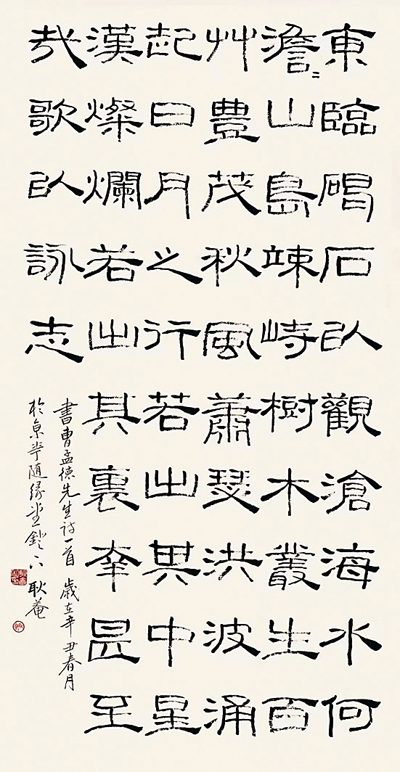 東臨碣石㠯觀滄海水何
澹〻山島竦峙樹木叢生百
艸豐茂秋風蕭瑟洪波涌
起日月之行若出其中星
漢燦爛若出其裏幸甚至
哉歌㠯詠志
書曹孟德先生詩一首 歲在辛丑春月
於京華隨緣堂鐙下 耿菴